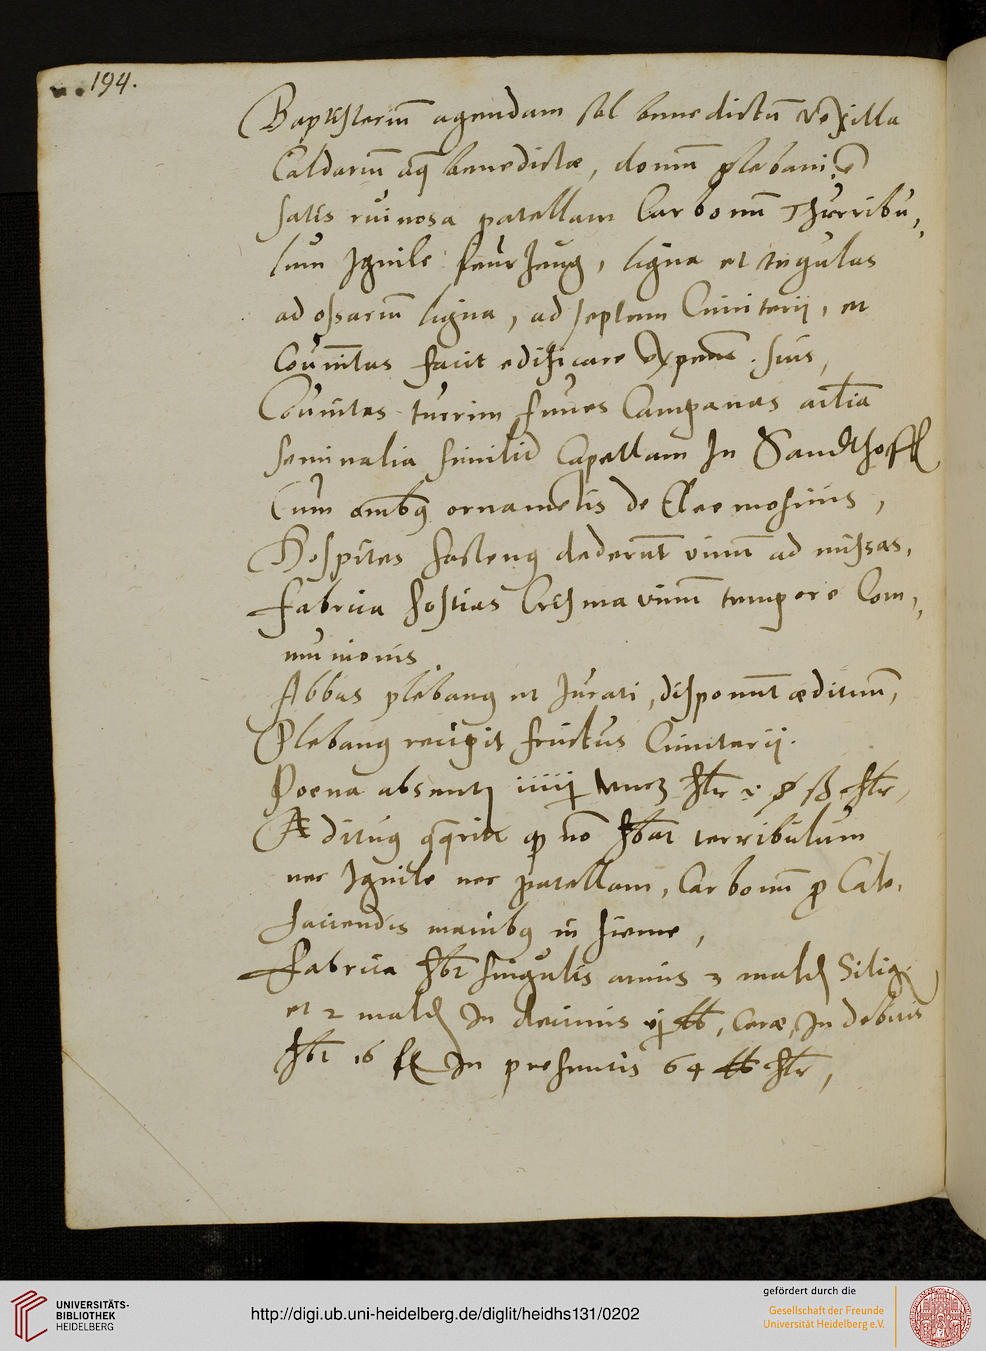 194.
Baptisteriū agendam sal benedictū vexilla
Caldariū aq̄ benedictæ, domū plebani, ē
satis ruinosa patellam Carbonū Thurribu,,
lum Ignile feurzeug, ligna et tegulas
ad ossariū ligna, ad septem Cimiterij, et
Cōūnitas facit edificare expens. suis,
Cōūnitas turrim funes Campanas acilia
seminalia similit Capellam In Sandthoff
Cum omnibꝰ ornamētis de Eleemosinis,
Hospites hactenꝰ dederūt vinū ad missas,
fabrica hostias Crisma vinū tempore Com,,
munionis
Abbas plebanꝰ et Jurati, disponūt ædituū,
Plebanꝰ recipit fructus Cimiterij.
Poena absentis iiiij hlr hlr,
Ædituꝰ qꝫ nō hbat terribulum
nec Ignile nec patellam, Carbonū ꝓ Cale,
faciendis manibꝰ in hieme,
fabrica hbt singulis annis 3 mald Silig.
et 2 mald In decimis vj lb, Ceræ, In debitis
hbt 16 fl In presentiis 64 lb hlr,
UNIVERSITÄTS-
BIBLIOTHEK
HEIDELBERG
http://digi.ub.uni-heidelberg.de/diglit/heidhs131/0202
gefördert durch die
Gesellschaft der Freunde
Universität Heidelberg e.V.